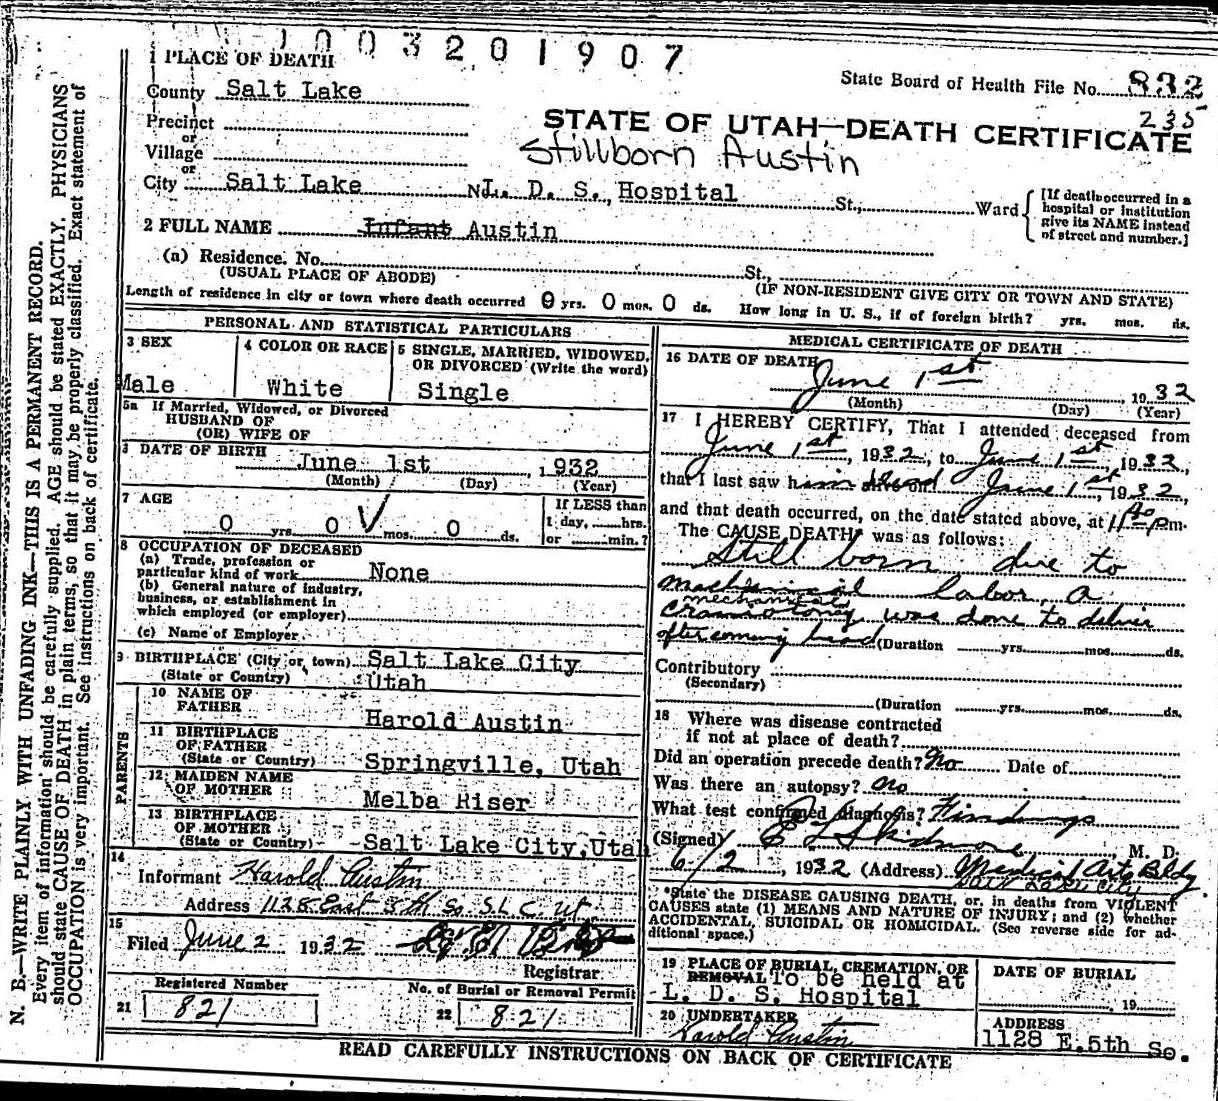 1003201907
1 PLACE OF DEATH
State Board of Health File No. 832
235
County Salt Lake
STATE OF UTAH—DEATH CERTIFICATE
Precinct
or
Village
Stillborn Austin
or
City Salt Lake No. L. D. S. Hospital St., Ward
[If death occurred in a
hospital or institution
give its NAME instead
of street and number.]
2 FULL NAME Infant Austin
(a) Residence. No. St.,
(USUAL PLACE OF ABODE) (IF NON-RESIDENT GIVE CITY OR TOWN AND STATE)
Length of residence in city or town where death occurred 0 yrs. 0 mos. 0 ds. How long in U. S., if of foreign birth? yrs. mos. ds.
PERSONAL AND STATISTICAL PARTICULARS
3 SEX
Male
4 COLOR OR RACE
White
5 SINGLE, MARRIED, WIDOWED,
OR DIVORCED (Write the word)
Single
5a If Married, Widowed, or Divorced
HUSBAND OF
(OR) WIFE OF
DATE OF BIRTH
June 1st, 1932
(Month) (Day) (Year)
7 AGE
0 yrs. 0 mos. 0 ds.
If LESS than
1 day, hrs.
or min.?
8 OCCUPATION OF DECEASED
(a) Trade, profession or
particular kind of work None
(b) General nature of industry,
business, or establishment in
which employed (or employer)
(c) Name of Employer
9 BIRTHPLACE (City or town) Salt Lake City
(State or Country) Utah
PARENTS
10 NAME OF
FATHER
Harold Austin
11 BIRTHPLACE
OF FATHER
(State or Country) Springville, Utah
12 MAIDEN NAME
OF MOTHER
Melba Riser
13 BIRTHPLACE
OF MOTHER
(State or Country) Salt Lake City, Utah
14
Informant Harold Austin
Address 1128 East 5th So. S.L.C. Ut.
15
Filed June 2 1932
Registrar
Registered Number
21 821
No. of Burial or Removal Permit
22 821
MEDICAL CERTIFICATE OF DEATH
16 DATE OF DEATH
June 1st 1932
(Month) (Day) (Year)
17 I HEREBY CERTIFY, That I attended deceased from
June 1st, 1932, to June 1st, 1932,
that I last saw him dead alive on June 1st, 1932,
and that death occurred, on the date stated above, at 11:40 pm.
The CAUSE DEATH was as follows:
Still born due to
mechanical labor, a
mechanical
craniotomy was done to deliver
aftercoming head (Duration yrs. mos. ds.
Contributory
(Secondary)
(Duration yrs. mos. ds.
18 Where was disease contracted
if not at place of death?
Did an operation precede death? No Date of
Was there an autopsy? No
What test confirmed diagnosis? Findings
(Signed) E L Skidmore, M. D.
6/2, 1932 (Address) Medical Arts Bldg.
Salt Lake City
*State the DISEASE CAUSING DEATH, or, in deaths from VIOLENT
CAUSES state (1) MEANS AND NATURE OF INJURY; and (2) whether
ACCIDENTAL, SUICIDAL OR HOMICIDAL. (See reverse side for ad-
ditional space.)
19 PLACE OF BURIAL, CREMATION, OR
REMOVAL To be held at
L. D. S. Hospital
DATE OF BURIAL
, 19
20 UNDERTAKER
Harold Austin
ADDRESS
1128 E. 5th So.
READ CAREFULLY INSTRUCTIONS ON BACK OF CERTIFICATE
N. B.—WRITE PLAINLY WITH UNFADING INK—THIS IS A PERMANENT RECORD.
Every item of information should be carefully supplied. AGE should be stated EXACTLY. PHYSICIANS
should state CAUSE OF DEATH in plain terms, so that it may be properly classified. Exact statement of
OCCUPATION is very important. See instructions on back of certificate.